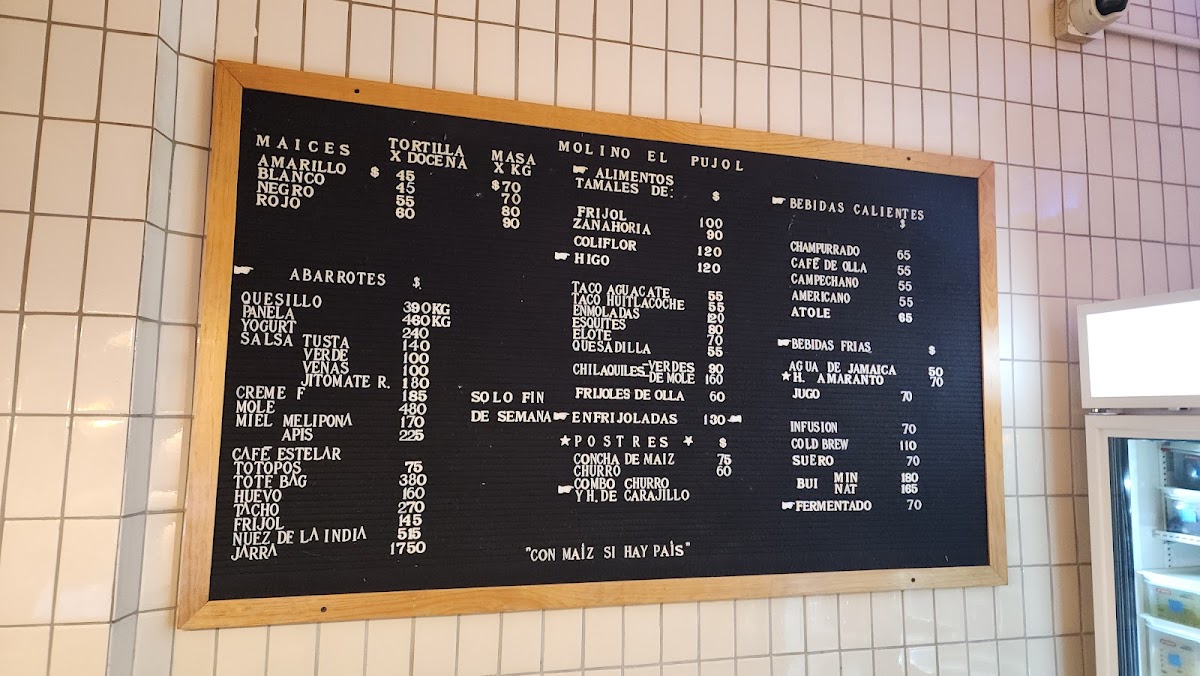 MOLINO EL PUJOL
MAICES TORTILLA X DOCENA MASA X KG
AMARILLO $ 45 $70
BLANCO 45 70
NEGRO 55 80
ROJO 60 90
ABARROTES $
QUESILLO 390KG
PANELA 460KG
YOGURT 240
SALSA TUSTA 140
VERDE 100
VENAS 100
JITOMATE R. 180
CREME F 185
MOLE 480
MIEL MELIPONA 170
APIS 225
CAFÉ ESTELAR
TOTOPOS 75
TOTE BAG 380
HUEVO 160
TACHO 270
FRIJOL 145
NUEZ DE LA INDIA 515
JARRA 1750
ALIMENTOS
TAMALES DE: $
FRIJOL 100
ZANAHORIA 90
COLIFLOR 120
HIGO 120
TACO AGUACATE 55
TACO HUITLACOCHE 55
ENMOLADAS 120
ESQUITES 80
ELOTE 70
QUESADILLA 55
CHILAQUILES VERDES 90
DE MOLE 160
FRIJOLES DE OLLA 60
SOLO FIN
DE SEMANA ENFRIJOLADAS 130
★POSTRES★ $
CONCHA DE MAIZ 75
CHURRO 60
COMBO CHURRO
Y H. DE CARAJILLO
BEBIDAS CALIENTES
$
CHAMPURRADO 65
CAFÉ DE OLLA 55
CAMPECHANO 55
AMERICANO 55
ATOLE 65
BEBIDAS FRIAS $
AGUA DE JAMAICA 50
★H. AMARANTO 70
JUGO 70
INFUSION 70
COLD BREW 110
SUERO 70
BUI MIN 180
NAT 165
FERMENTADO 70
"CON MAÍZ SI HAY PAÍS"